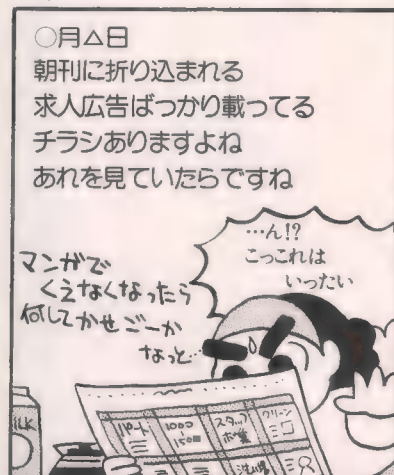 ○月△日
朝刊に折り込まれる
求人広告ばっかり載ってる
チラシありますよね
あれを見ていたらですね
…ん!?
こっこれは
いったい
マンガで
くえなくなったら
何してかせごーか
なっと…
パート
1000
1500
スタッフ
募集
クリーン
ILK